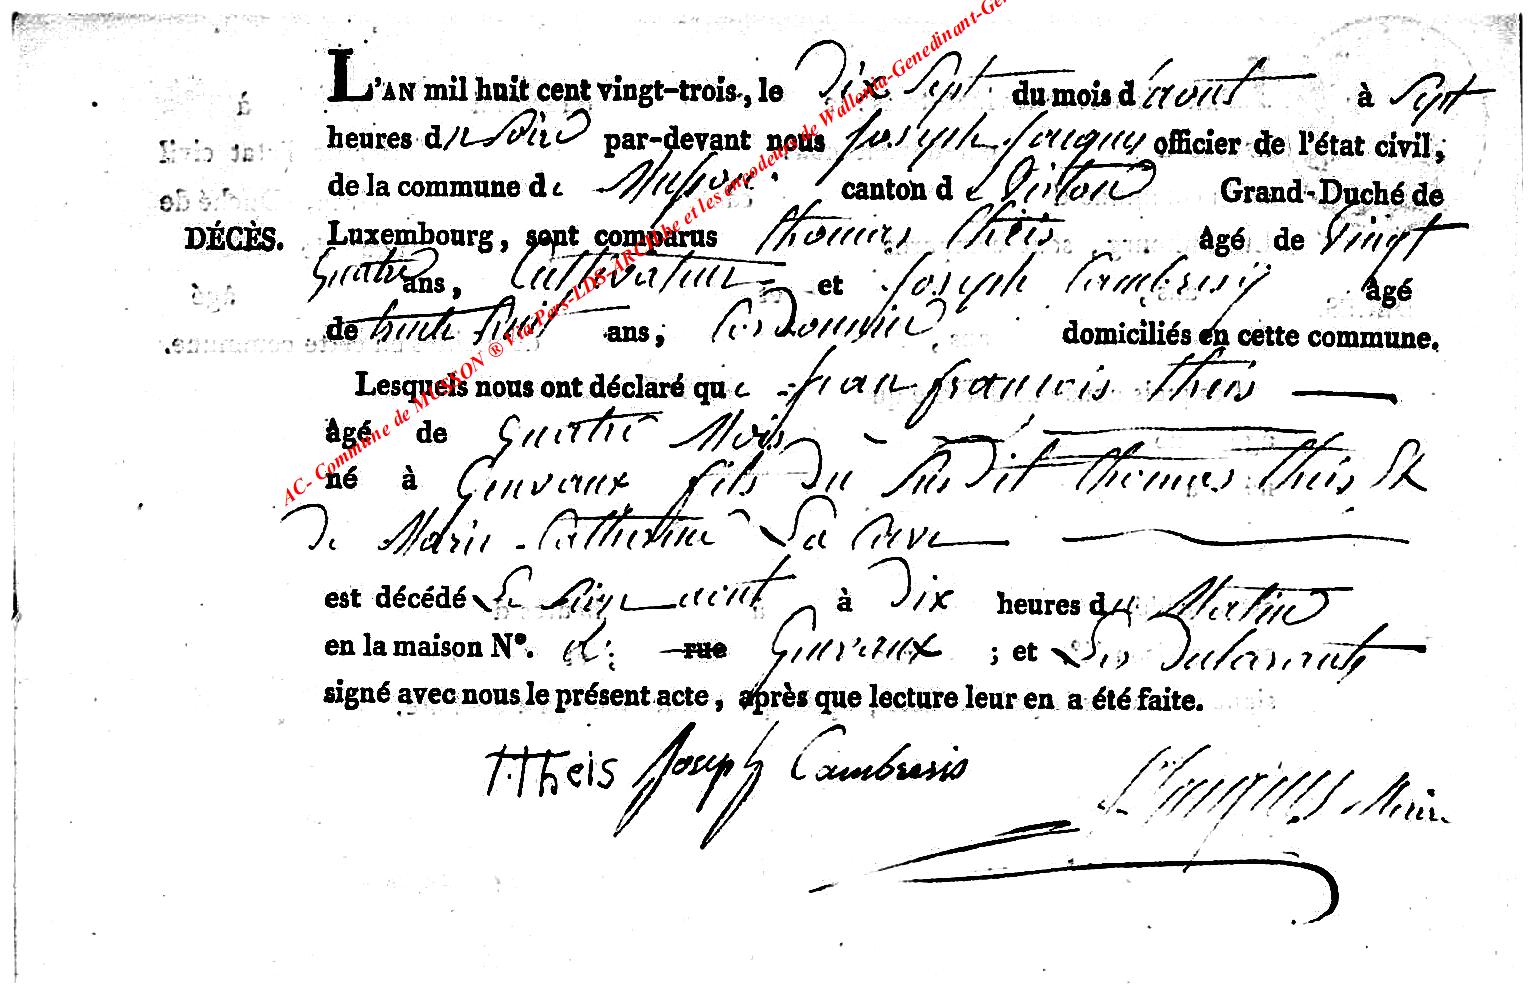 L'AN mil huit cent vingt-trois, le dix sept du mois d'aout à sept
heures du soir par-devant nous Joseph officier de l'état civil,
de la commune de Musson canton de Virton Grand-Duché de
DÉCÈS. Luxembourg, sont comparus thomas theis âgé de vingt
quatre ans, Cultivateur et Joseph Cambresy âgé
de trente huit ans, Cordonnier domiciliés en cette commune.
Lesquels nous ont déclaré que jean françois theis
âgé de quatre Mois
né à Genvaux fils du susdit thomas theis et
de Marie Catherine La Cave
est décédé Le aout à dix heures du Matin
en la maison N°. de rue Genvaux ; et Les declarants
signé avec nous le présent acte, après que lecture leur en a été faite.
t.theis Joseph Cambresis
AC- Commune de MUSSON ® Via Pars-LDS-ARCH.be et les encodeurs de Wallonia-Genedinant-Ge